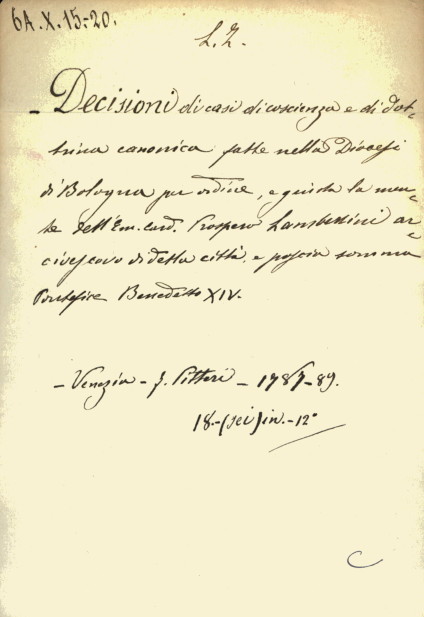 6A.X.15-20.
L. Z.
- Decisioni di casi di coscienza e di dot-
trina canonica fatte nella Diocesi
di Bologna per ordine, e guida la men-
te dell'Em. Card. Prospero Lambertini ar-
civescovo di detta città, e poscia sommo
Pontefice Benedetto XIV.
- Venezia - F. Pitteri - 1787-89.
18.-(sei) in.-12°
C